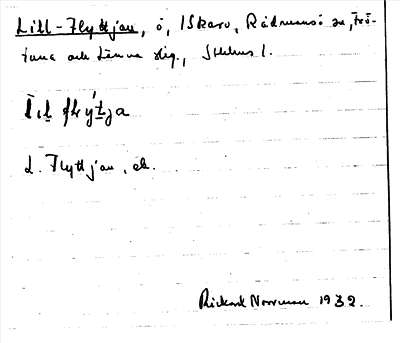 Lill-Flyttjan, ö, i Skaro, Rådmansö sn, Frö-
tuna och Länna slg., Sthlms l.
L. Flyttjan, ek.
Rickard Norrman 1932.